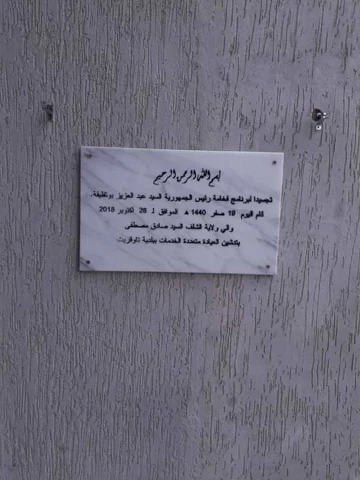 بسم الله الرحمن الرحيم
تجسيدا لبرنامج فخامة رئيس الجمهورية السيد عبد العزيز بوتفليقة.
قام اليوم 19 صفر 1440 هـ الموافق لـ 28 أكتوبر 2018
والي ولاية الشلف السيد صادق مصطفى
بتدشين العيادة متعددة الخدمات ببلدية تاوقريت